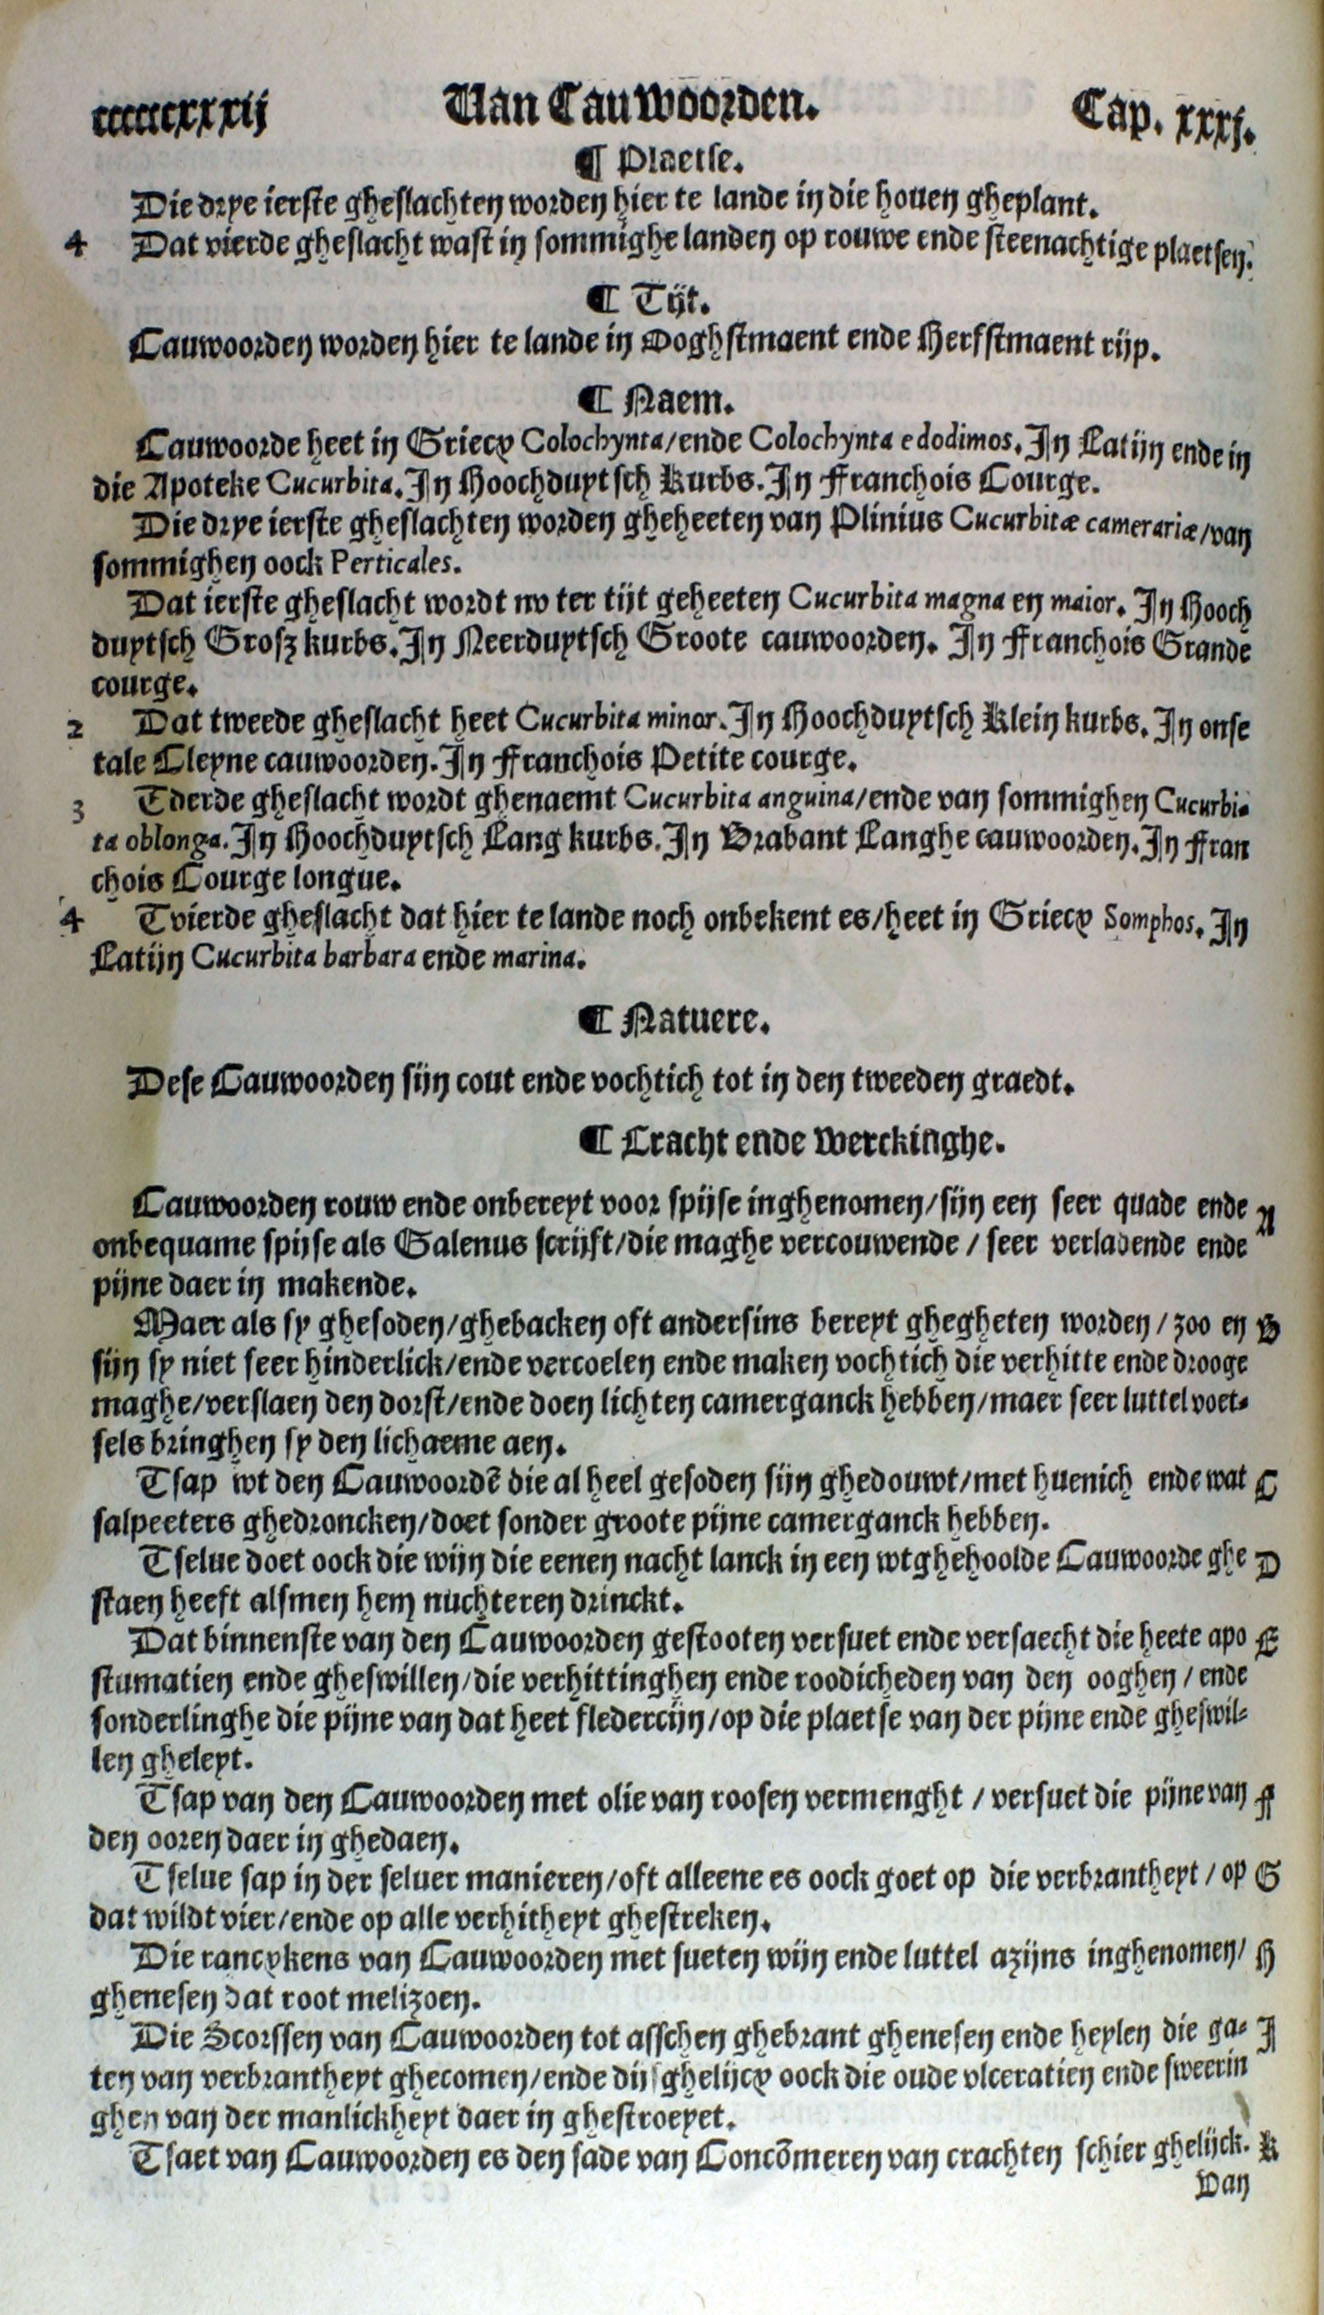 ccccccxxxij Van Cauwoorden. Cap. xxxj.
¶ Plaetse.
Die drye ierste gheslachten worden hier te lande in die houen gheplant.
4 Dat vierde gheslacht wast in sommighe landen op rouwe ende steenachtige plaetsen.
¶ Tijt.
Cauwoorden worden hier te lande in Ooghstmaent ende Herfstmaent rijp.
¶ Naem.
Cauwoorde heet in Griecx Colochynta/ende Colochynta edodimos. In Latijn ende in
die Apoteke Cucurbita. In Hoochduytsch Kurbs. In Franchois Courge.
Die drye ierste gheslachten worden gheheeten van Plinius Cucurbitæ camerariæ/van
sommighen oock Perticales.
Dat ierste gheslacht wordt nv ter tijt geheeten Cucurbita magna en maior. In Hooch
duytsch Grosz kurbs. In Neerduytsch Groote cauwoorden. In Franchois Grande
courge.
2 Dat tweede gheslacht heet Cucurbita minor. In Hoochduytsch Klein kurbs. In onse
tale Cleyne cauwoorden. In Franchois Petite courge.
3 Tderde gheslacht wordt ghenaemt Cucurbita anguina/ende van sommighen Cucurbi-
ta oblonga. In Hoochduytsch Lang kurbs. In Brabant Langhe cauwoorden. In Fran
chois Courge longue.
4 Tvierde gheslacht dat hier te lande noch onbekent es/heet in Griecx Somphos. In
Latijn Cucurbita barbara ende marina.
¶ Natuere.
Dese Cauwoorden sijn cout ende vochtich tot in den tweeden graedt.
¶ Cracht ende Werckinghe.
Cauwoorden rouw ende onbereyt voor spijse inghenomen/sijn een seer quade ende A
onbequame spijse als Galenus scrijft/die maghe vercouwende/seer verladende ende
pijne daer in makende.
Maer als sy ghesoden/ghebacken oft andersins bereyt ghegheten worden/zoo en B
sijn sy niet seer hinderlick/ende vercoelen ende maken vochtich die verhitte ende drooge
maghe/verslaen den dorst/ende doen lichten camerganck hebben/maer seer luttel voet-
sels bringhen sy den lichaeme aen.
Tsap wt den Cauwoordē die al heel gesoden sijn ghedouwt/met huenich ende wat C
salpeeters ghedroncken/doet sonder groote pijne camerganck hebben.
Tselue doet oock die wijn die eenen nacht lanck in een wtghehoolde Cauwoorde ghe D
staen heeft alsmen hem nuchteren drinckt.
Dat binnenste van den Cauwoorden gestooten versuet ende versaecht die heete apo E
stumatien ende gheswillen/die verhittinghen ende roodicheden van den ooghen/ende
sonderlinghe die pijne van dat heet fledercijn/op die plaetse van der pijne ende gheswil-
len gheleyt.
Tsap van den Cauwoorden met olie van roosen vermenght/versuet die pijne van F
den ooren daer in ghedaen.
Tselue sap in der seluer manieren/oft alleene es oock goet op die verbrantheyt/op G
dat wildt vier/ende op alle verhitheyt ghestreken.
Die rancxkens van Cauwoorden met sueten wijn ende luttel azijns inghenomen/ H
ghenesen dat root melizoen.
Die Scorssen van Cauwoorden tot asschen ghebrant ghenesen ende heylen die ga- I
ten van verbrantheyt ghecomen/ende dijsghelijcx oock die oude vlceratien ende sweerin
ghen van der manlickheyt daer in ghestroeyet.
Tsaet van Cauwoorden es den sade van Concōmeren van crachten schier ghelijck. K
Van